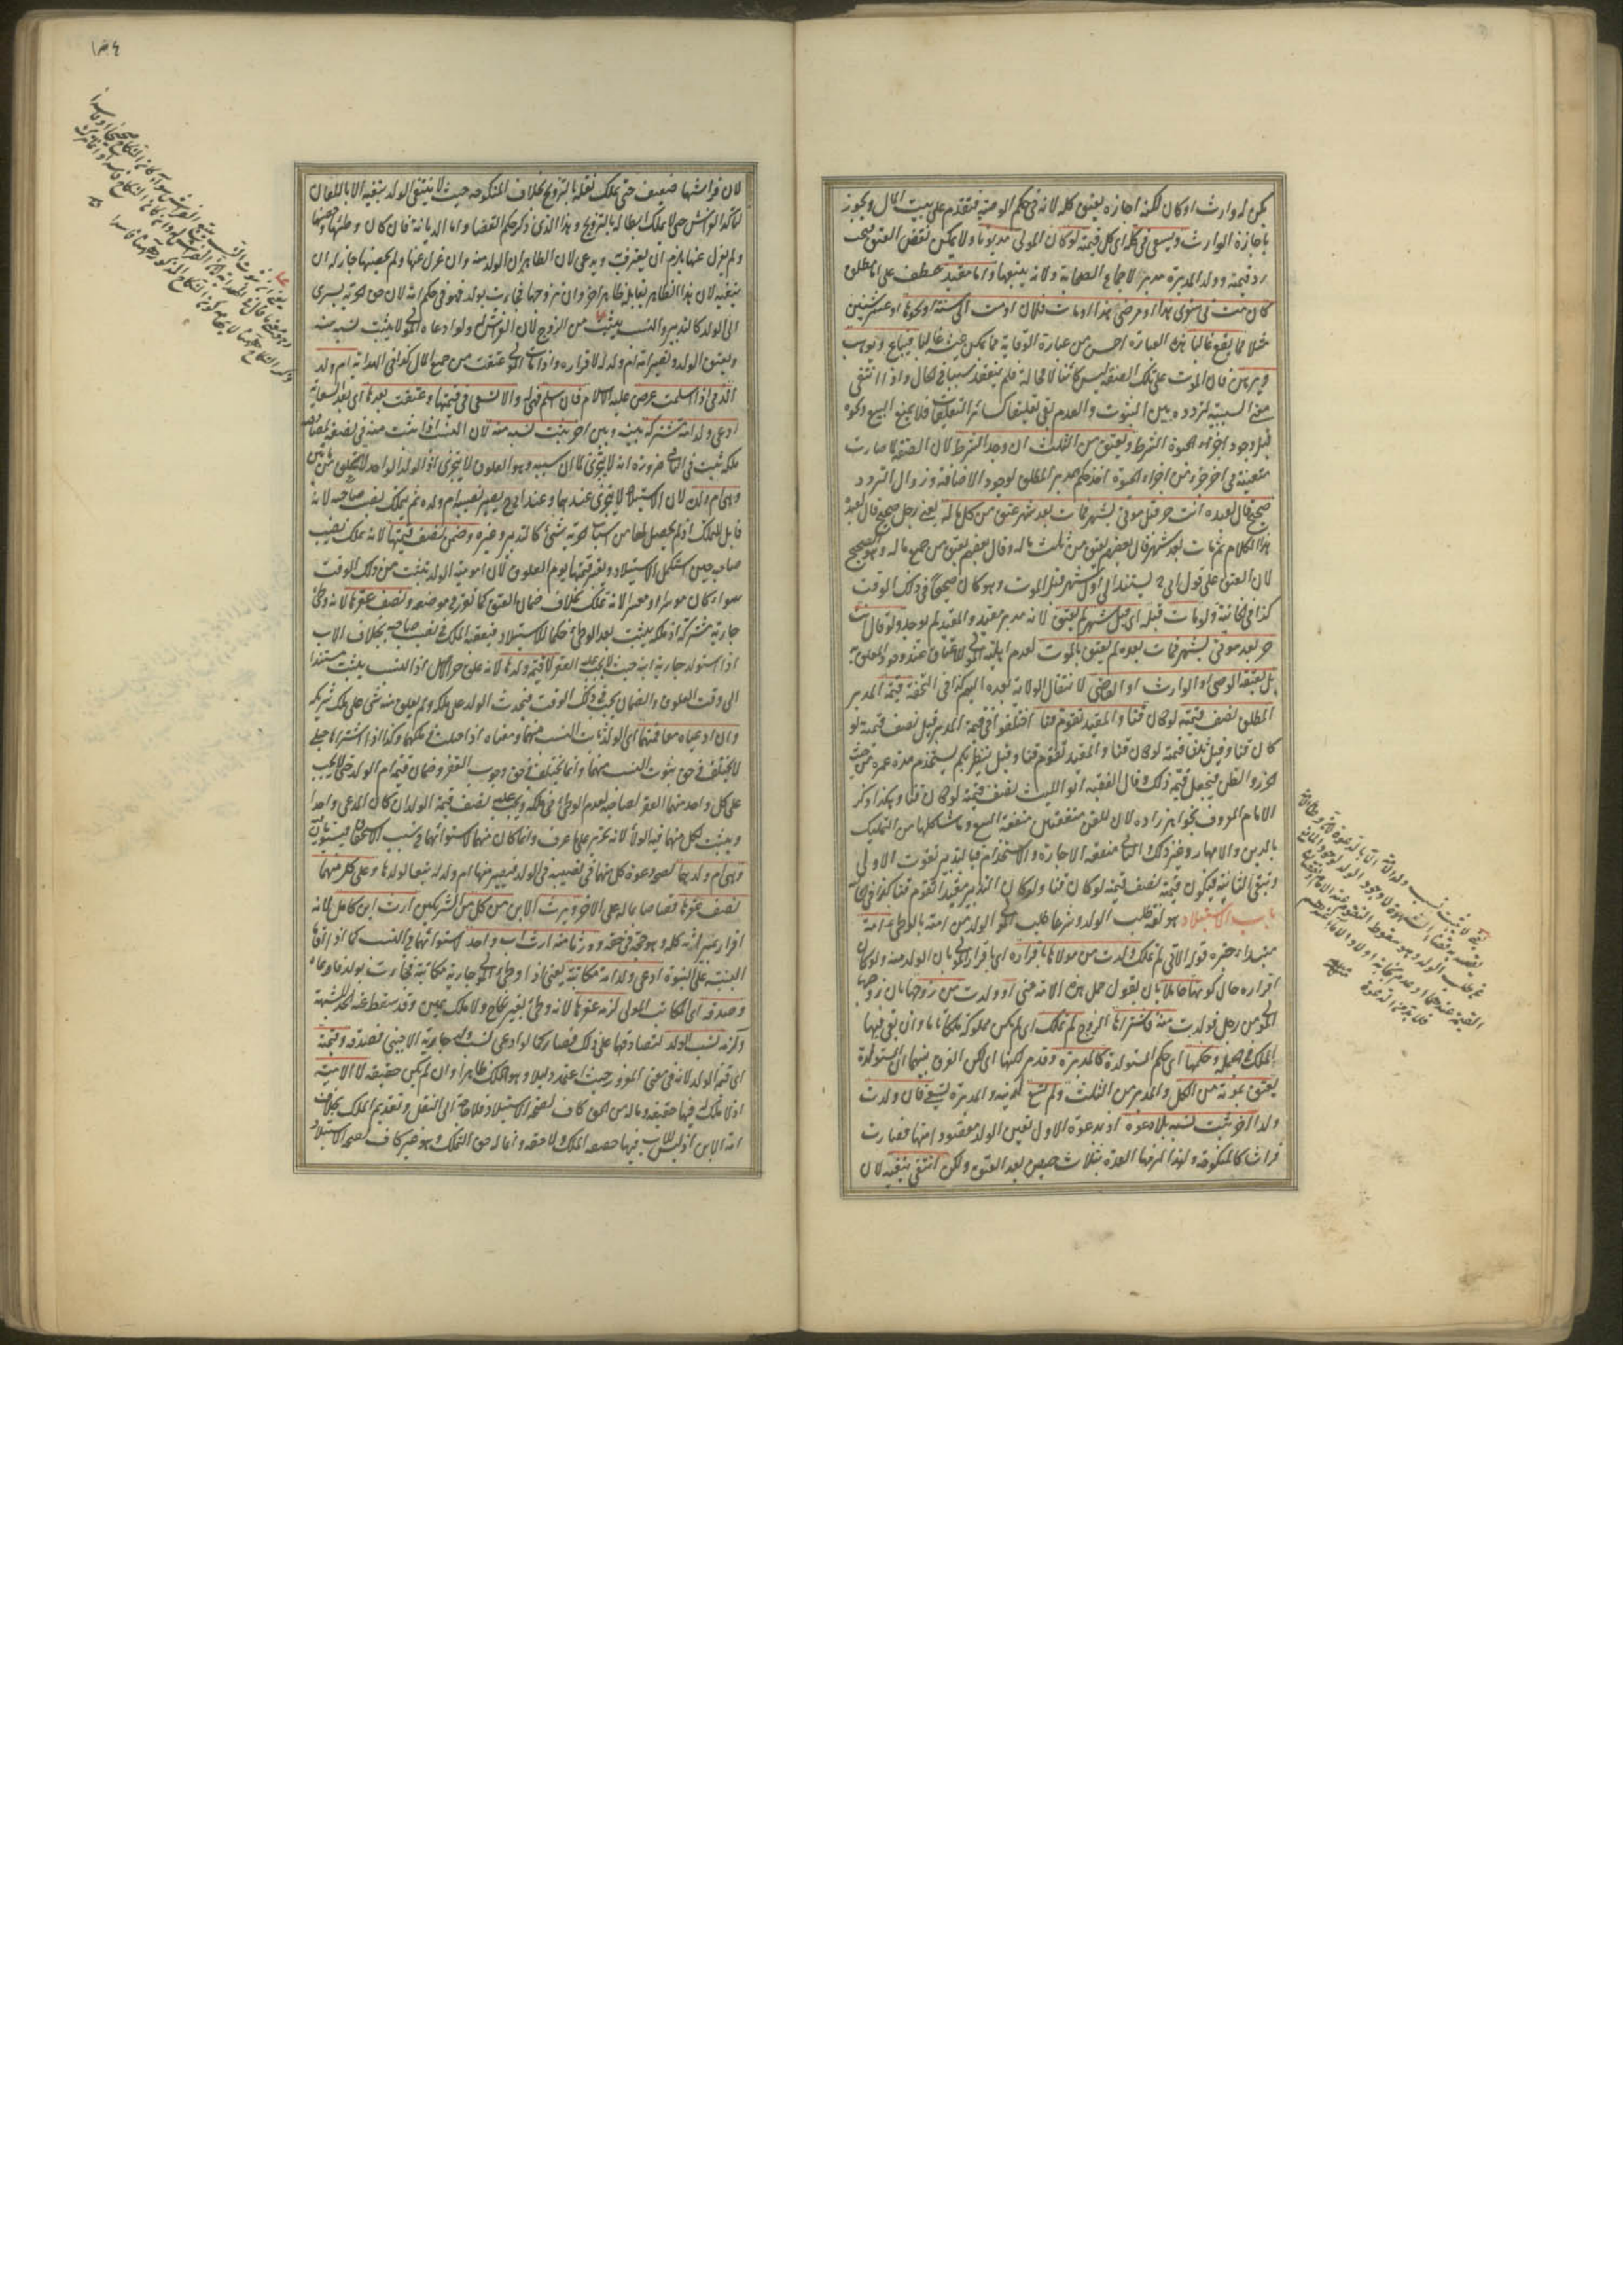 يكن له وارث او كان لكنه اجازه يعتق كله لانه في حكم الوصية فتقدم على بيت المال ويجوز
باجازة الوارث ويسعى في كله اى كل قيمته لو كان المولى مديونا ولا يمكن نقض العتق فيجب
رد قيمته وولد المدبرة مدبر لاجماع الصحابة ولانه يتبعها واما مقيد عطف على اما مطلق
كان مت في سفرى هذا او مرضى هذا او مات فلان او مت الى سنة او نحوها او عشر سنين
مثلا مما يقع غالبا هذه العبارة احسن من عبارة الوقاية مما يمكن غالبا فيباع ويوهب
ويرهن فان الموت على تلك الصفة ليس كائنا لا محالة فلم ينعقد سببا في الحال واذا انتفى
معنى السببية لتردده بين الثبوت والعدم بقى تعليقا كسائر التعليقات فلا يمنع البيع ونحوه
قبل وجود الشرط ويعتق من الثلث ان وجد الشرط لان الصفة لما صارت
متعينة في اخر جزء من اجزاء الحيوة اخذ حكم مدبر المطلق لوجود الاضافة وزوال التردد
صحيح قال لعبده انت حر قبل موتى بشهر فمات بعد شهر عتق من كل ماله يعنى رجل صحيح قال لعبده
هذا الكلام ثم مات بعد شهر قال بعضهم يعتق من ثلث ماله وقال بعضهم يعتق من جميع ماله وهو الصحيح
لان العتق على قول ابى ح يستند الى اول شهر قبل الموت وهو كان صحيحا في ذلك الوقت
كذا في الخانية ولو مات قبله اى قبل شهر لم يعتق لانه مدبر مقيد والمقيد لم يوجد ولو قال انت
حر بعد موتى بشهر فمات بعده لم يعتق بالموت لعدم اهلية المولى للاعتاق عند وجود المعلق به
بل يعتقه الوصى او الوارث او القاضى لانتقال الولاية بعده اليهم كذا في التحفة قيمة المدبر
المطلق نصف قيمته لو كان قنا والمقيد يقوم قنا اختلفوا في قيمة المدبر قيل نصف قيمته لو
كان قنا وقيل ثلثا قيمته لو كان قنا والمقيد يقوم قنا وقيل ينظر بكم يستخدم مدة عمره من حيث
الحزر والظن فيجعل قيمته ذلك وقال الفقيه ابو الليث نصف قيمته لو كان قنا وهكذا ذكر
الامام المعروف بخواهر زاده لان للقن منفعتين منفعة البيع وما شاكلها من التمليك
بالدين والامهار وغير ذلك والثانى منفعة الاجارة والاستخدام فبالتدبير تفوت الاولى
وتبقى الثانية فيكون قيمته نصف قيمته لو كان قنا ولو كان التدبير مقيدا تقوم قنا كذا في
باب الاستيلاد هو لغة طلب الولد وشرعا طلب المولى الولد من امته بالوطى امة
مبتداء خبره قوله الاتى لم تملك ولدت من مولاها باقراره اى باقرار المولى بان الولد منه ولو كان
اقراره حال كونها حاملا بان يقول حمل هذه الامة منى او ولدت من زوجها بان زوجها
المولى من رجل فولدت منه فاشتراها الزوج لم تملك اى لم يكن مملوكة ملكا تاما وان بقى فيها
الملك في الجملة وحكمها اى حكم المستولدة كالمدبرة وقد مر لكنها اى لكن الفرق بينهما ان المستولدة
تعتق بموته من الكل والمدبر من الثلث ولم تسع لدينه والمدبرة تسعى فان ولدت
ولدا اخر ثبت نسبه بلا دعوة اذ بدعوة الاول تعين الولد مقصودا منها فصارت
فراشا كالمنكوحة ولهذا لزمها العدة بثلاث حيض بعد العتق ولكن انتفى بنفيه لان
لان فراشها ضعيف حتى يملك نقله بالتزويج بخلاف المنكوحة حيث لا ينتفى الولد بنفيه الا باللعان
لتاكد الفراش حتى لا يملك ابطاله بالتزويج وهذا الذى ذكر حكم القضاء واما الديانة فان كان وطئها وحصنها
ولم يعزل عنها يلزم ان يعترف ويدعى لان الظاهر ان الولد منه وان عزل عنها ولم يحصنها جاز له ان
ينفيه لان هذا الظاهر يقابله ظاهر اخر وان زوجها فجاءت بولد فهو في حكم امه لان حق الحرية يسرى
الى الولد كالتدبير والنسب يثبت من الزوج لان الفراش له ولو ادعاه المولى لا يثبت نسبه منه
ويعتق الولد وتصير امه ام ولد له لاقراره واذا مات المولى عتقت من جميع المال كذا في الهداية ام ولد
الذمى اذا اسلمت عرض عليه الاسلام فان اسلم فهى له والا تسعى في قيمتها وعتقت بعدها اى بعد السعاية
ادعى ولد امة مشتركة بينه وبين اخر يثبت نسبه منه لان النسب اذا ثبت منه في نصفه لمصادفته
ملكه ثبت في الباقى ضرورة انه لا يتجزى لما ان سببه وهو العلوق لا يتجزى اذ الولد الواحد لا ينعلق من مائين
وهى ام ولده لان الاستيلاد لا يتجزى عندهما وعند ابى ح يصير نصيبه ام ولد ثم يتملك نصيب صاحبه لانه
قابل للملك اذ لم يحصل لها من اسباب الحرية شئ كالتدبير وغيره وضمن نصف قيمتها لانه تملك نصيب
صاحبه حين استكمل الاستيلاد ويعتبر قيمتها يوم العلوق لان امومية الولد تثبت من ذلك الوقت
سواء كان موسرا او معسرا لانه تملك بخلاف ضمان العتق كما تقرر في موضعه ونصف عقرها لانه وطئ
جارية مشتركة اذ ملكه يثبت بعد الوطئ حكما للاستيلاد فيعقبه الملك في نصيب صاحبه بخلاف الاب
اذا استولد جارية ابنه حيث لا يجب عليه العقر لا قيمة ولدها لانه علق حر الاصل اذ النسب يثبت مستندا
الى وقت العلوق والضمان يجب في ذلك الوقت فيحدث الولد على ملكه ولم يعلق منه شئ على ملك شريكه
وان ادعياه معا فمنهما اى الولد ثابت النسب منهما ومعناه اذا حبلت في ملكهما وكذا اذا اشترياها حبلى
لا يختلف في حق ثبوت النسب منهما وانما يختلف في حق وجوب العقر وضمان قيمة ام الولد حتى لا يجب
على كل واحد منهما العقر لصاحبه لعدم الوطئ في ملكه ويجب عليه نصف قيمة الولد ان كان المدعى واحدا
ويثبت لكل منهما فيه الولاء لانه تحرير على ما عرف وانما كان منهما لاستوائهما في سبب الاستحقاق فيستويان فيه
وهى ام ولد لهما لصحة دعوة كل منهما في نصيبه في الولد فيصير نصيبه منها ام ولد له تبعا لولدها وعلى كل منهما
نصف عقرها قصاصا بماله على الاخر ويرث الابن من كل من الشريكين ارث ابن كامل لانه
اقرار بميراثه كله وهو حجة في حقه وورثا منه ارث اب واحد لاستوائهما في النسب كما اذا اقاما
البينة على البنوة ادعى ولد امة مكاتبه يعنى اذا وطئ المولى جارية مكاتبه فجاءت بولد فادعاه
وصدقه اى المكاتب المولى لزمه عقرها لانه وطئ بغير نكاح ولا ملك يمين وقد سقط عنه الحد للشبهة
ولزمه نسب الولد لتصادقهما على ذلك فصار كما لو ادعى نسب ولد جارية الاجنبى فصدقه وقيمته
اى قيمة الولد لانه في معنى المغرور حيث اعتمد دليلا وهو الملك ظاهرا وان لم يكن حقيقة لا الامية
اذ لا ملك له فيها حقيقة وماله من الحق كاف لصحة الاستيلاد فلا حاجة الى النقل وتقديم الملك بخلاف
امة الابن اذ ليس للاب فيها حقيقة الملك ولا حقه وانما له حق التملك وهو غير كاف لصحة الاستيلاد